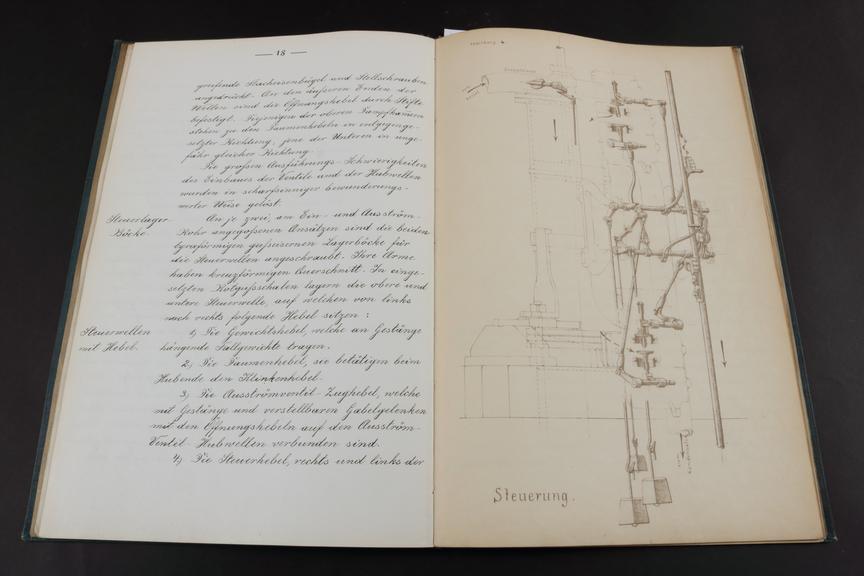 — 18 —
greifende Flacheisenbügel und Stellschrauben
angedrückt. An den äußeren Enden der
Wellen sind die Öffnungshebel durch Stifte
befestigt. Diejenigen der oberen Dampfkammern
stehen zu den Daumenhebeln in entgegenge-
setzter Richtung, jene der Unteren in unge-
fähr gleicher Richtung.
Die großen Ausführungs-Schwierigkeiten
des Einbaues der Ventile und der Hubwellen
wurden in scharfsinniger bewunderungs-
werter Weise gelöst.
Steuerlager-
Böcke.
An je zwei, am Ein- und Ausström-
Rohr angegoßenen Ansätzen sind die beiden
lyraförmigen gußeisernen Lagerböcke für
die Steuerwellen angeschraubt. Ihre Arme
haben kreuzförmigen Querschnitt. In einge-
setzten Rotgußschalen lagern die obere und
untere Steuerwelle, auf welchen von links
nach rechts folgende Hebel sitzen:
Steuerwellen
mit Hebel.
1) Die Gewichtshebel, welche an Gestänge
hängende Fallgewichte tragen.
2) Die Daumenhebel, sie betätigen beim
Hubende den Klinkenhebel.
3) Die Ausströmventil-Zughebel, welche
mit Gestänge und verstellbaren Gabelgelenken
mit den Öffnungshebeln auf den Ausström-
Ventil-Hubwellen verbunden sind.
4) Die Steuerhebel, rechts und links der
Steuerung.